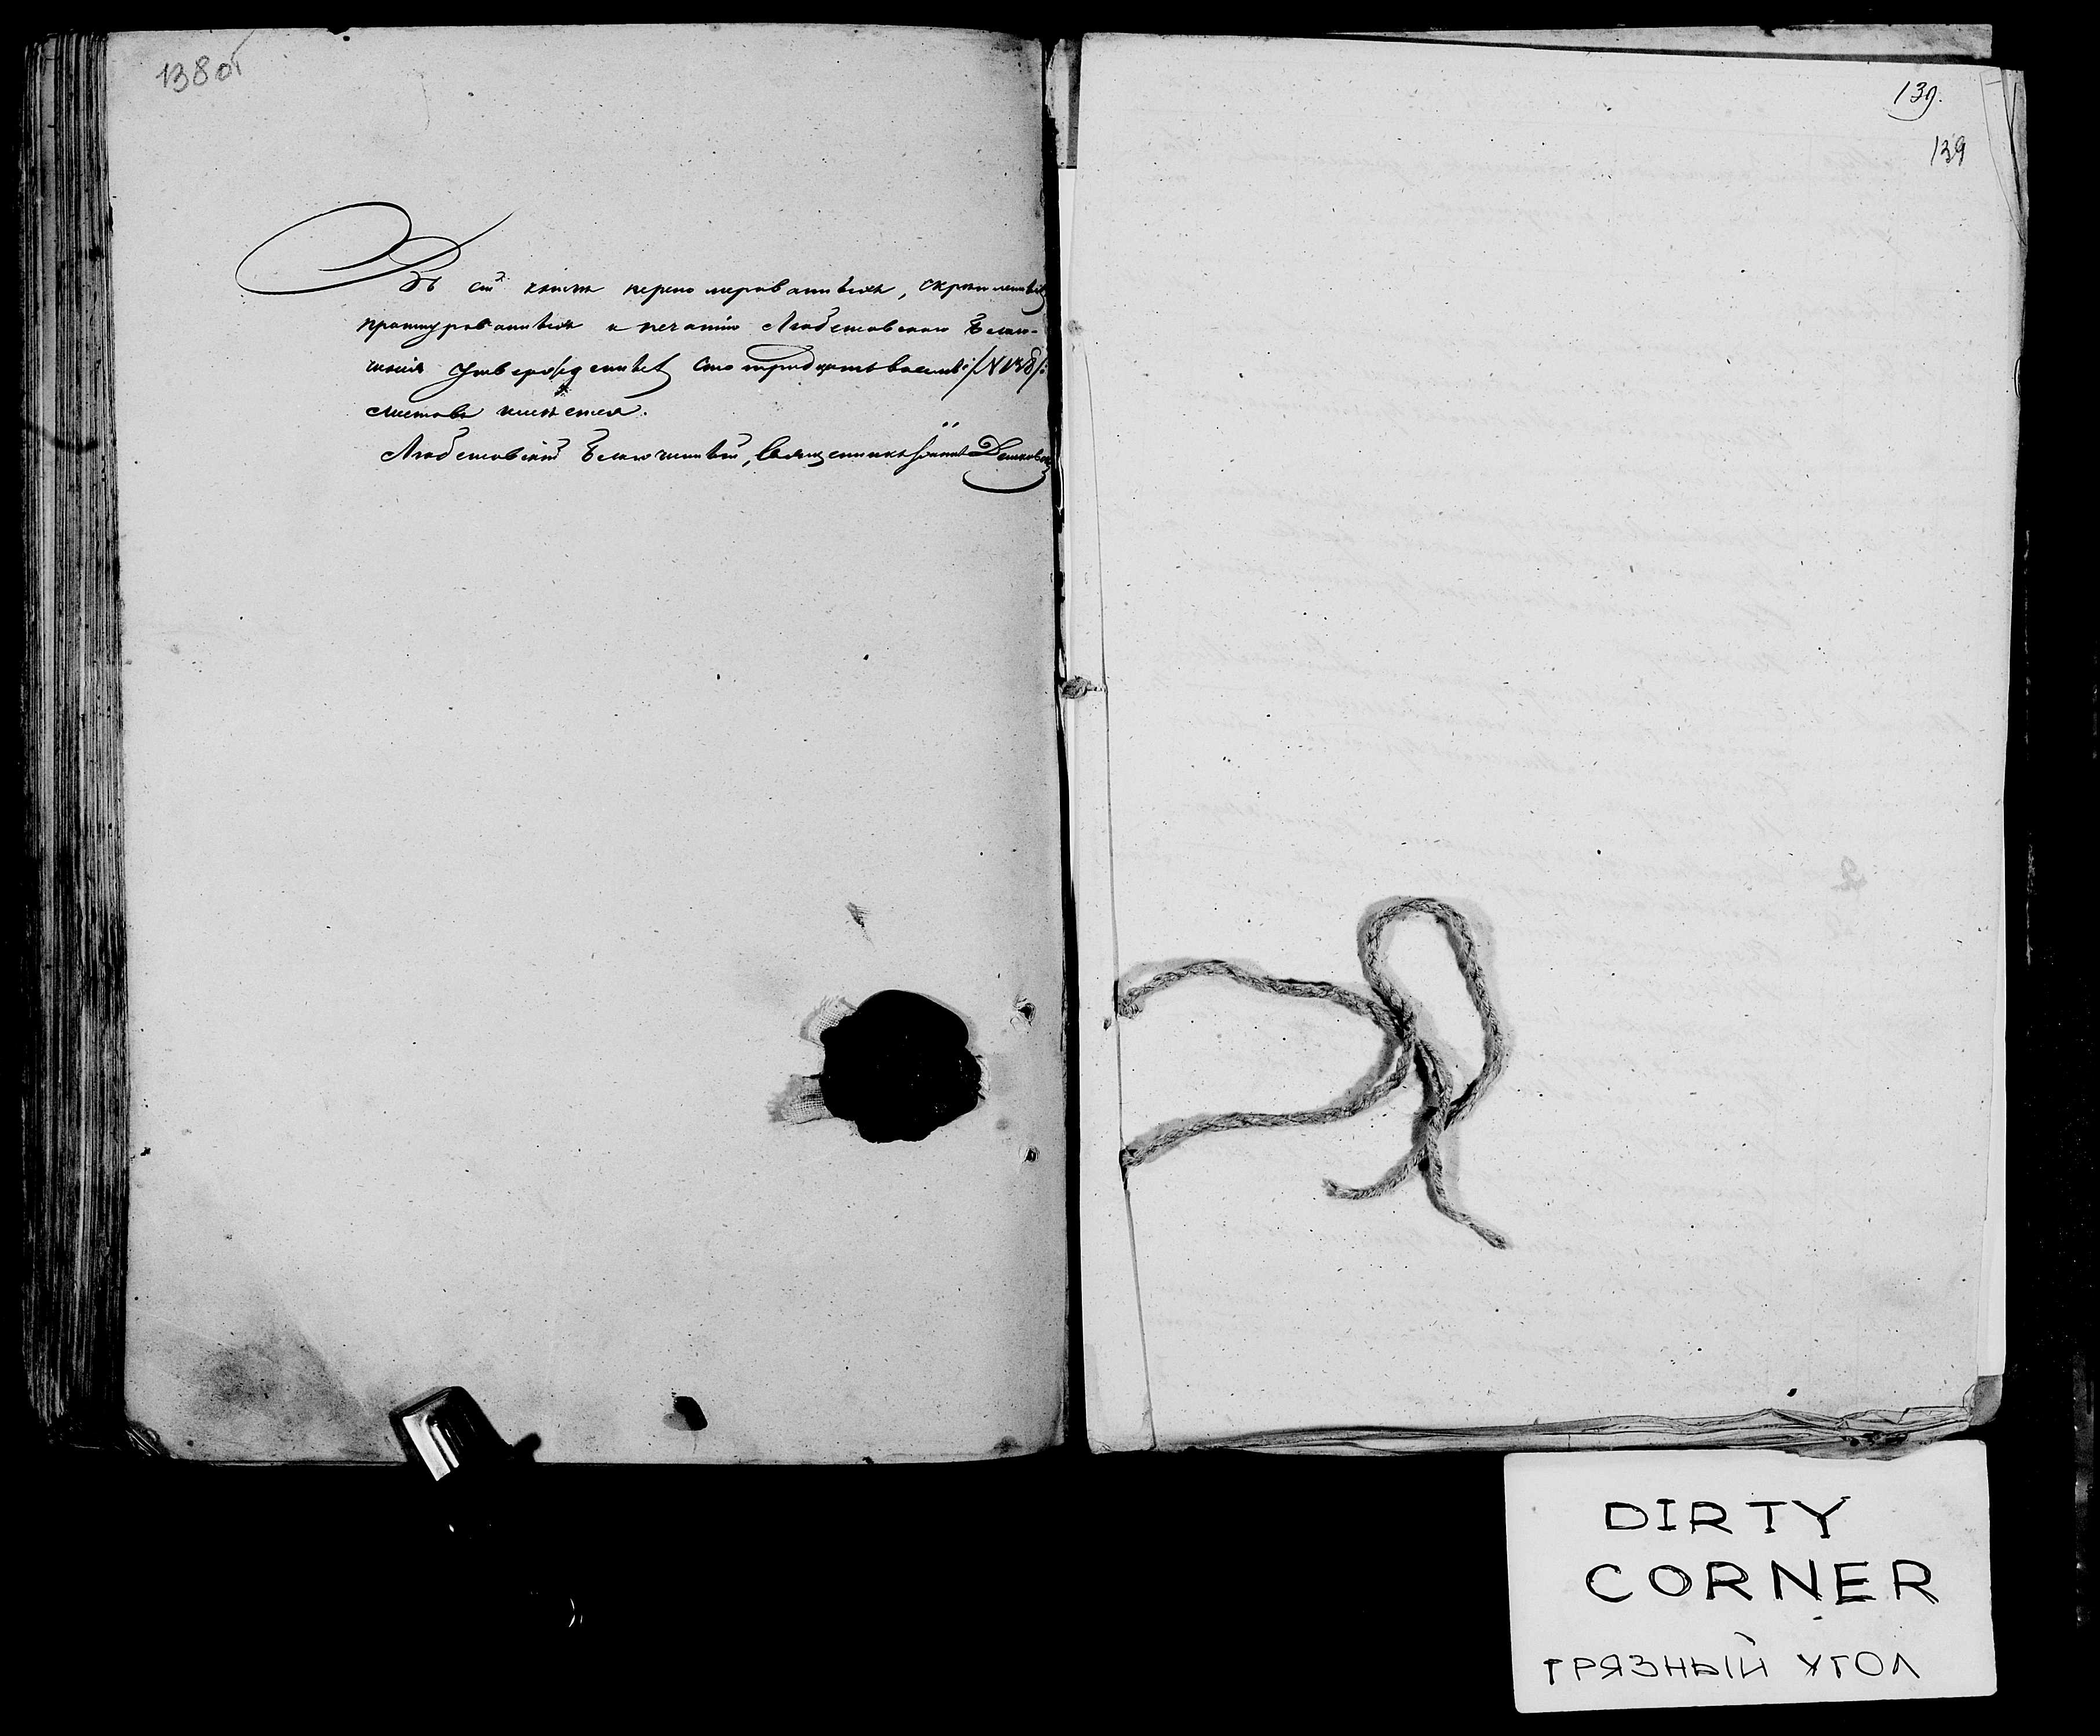 138об
Въ сей книге перенумерованныхъ, скрепленныхъ
прошнурованныхъ и печатью Любешовского Благо-
чинія утвержденныхъ сто тридцать восемь /:N 138/:
листовъ имеется.
Любешовскій Благочинный, Священникъ Іоаннъ
139.
139
DIRTY
CORNER
ГРЯЗНЫЙ УГОЛ